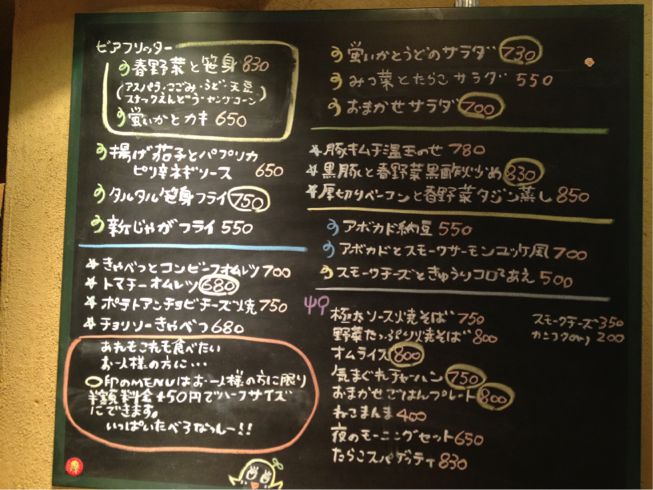 ビアフリッター
春野菜と笹身 830
(アスパラ・こごみ・うど・天豆
スナックえんどう・ヤングコーン)
蛍いかとカキ 650
揚げ茄子とパプリカ
ピリ辛ネギソース 650
タルタル笹身フライ 750
新じゃがフライ 550
きゃべつとコンビーフオムレツ 700
トマチーオムレツ 680
ポテトアンチョビチーズ焼 750
チョリソーきゃべつ 680
あれもこれも食べたい
お一人様の方に…
〇印のMENUはお一人様の方に限り
半額料金+50円でハーフサイズ
にできます。
いっぱいたべろなっしー!!
蛍いかとうどのサラダ 730
みつ菜とたらこサラダ 550
おまかせサラダ 700
豚キムチ温玉のせ 780
黒豚と春野菜黒酢炒め 830
厚切りベーコンと春野菜タジン蒸し 850
アボカド納豆 550
アボカドとスモークサーモンユッケ風 700
スモークチーズときゅうりコロコロあえ 500
極太ソース焼そば 750
野菜たっぷり焼そば 800
オムライス 800
気まぐれチャーハン 750
おまかせごはんプレート 800
ねこまんま 400
夜のモーニングセット 650
たらこスパゲッティ 830
スモークチーズ 350
200